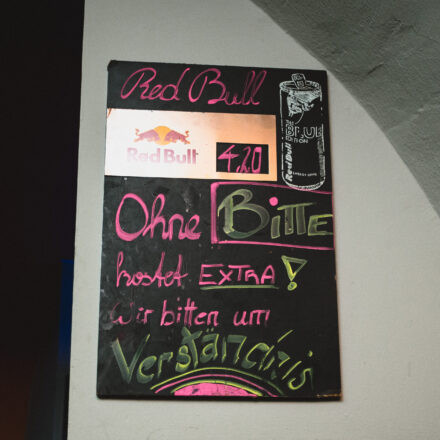 Red Bull
Red Bull 4,20
BLUE
EDITION
Red Bull
ENERGY DRINK
Ohne Bitte
kostet EXTRA!
Wir bitten um
Verständnis